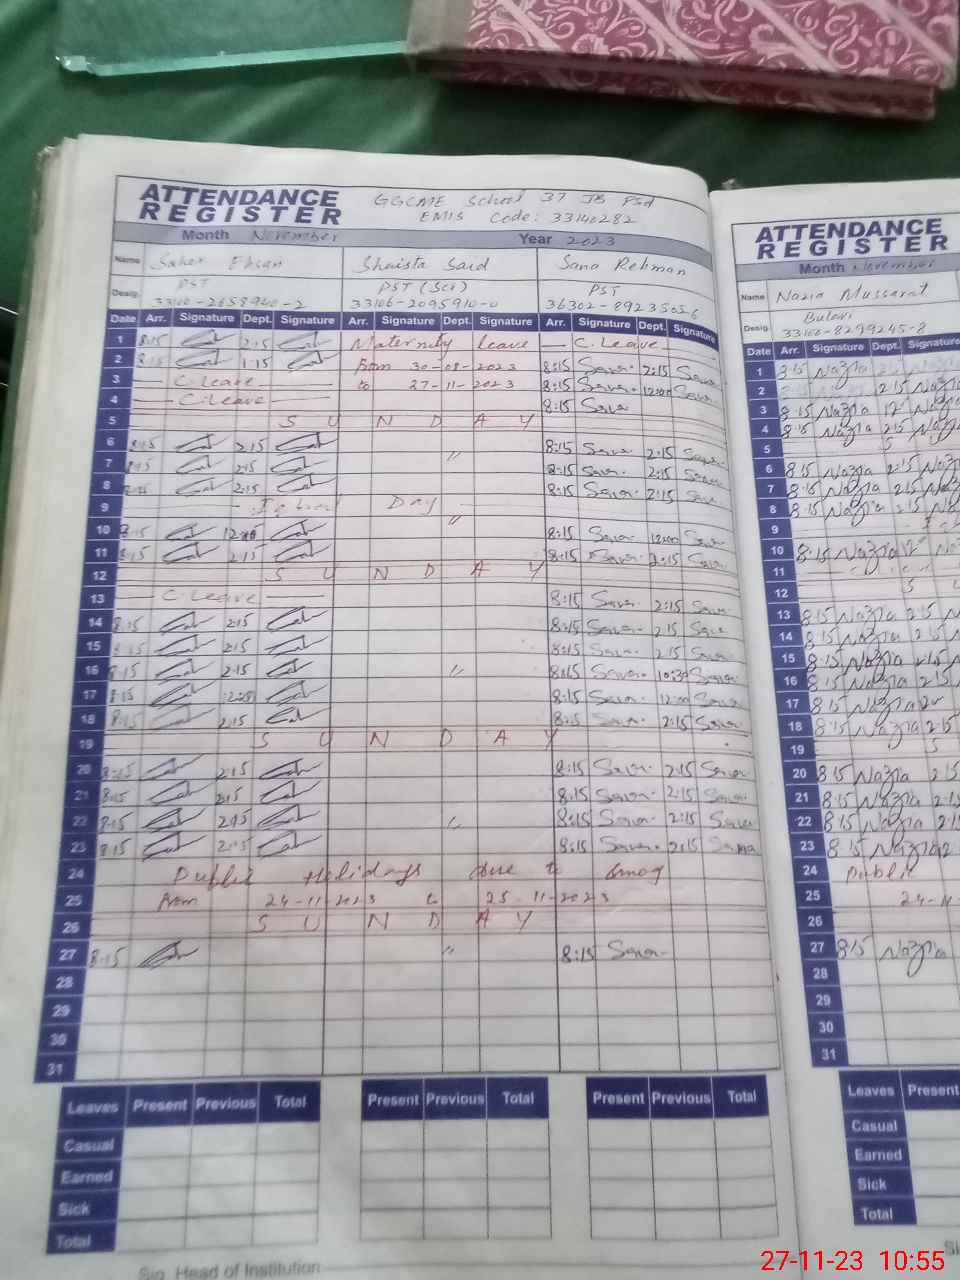 ATTENDANCE REGISTER
GGCME School 37 JB Fsd
EMIS Code: 33140282
Month November Year 2023
Name Saher Ehsan Shaista Said Sana Rehman
Desig. PST PST (Sci) PST
33106-2095910-0
Date Arr. Signature Dept. Signature Arr. Signature Dept. Signature Arr. Signature Dept. Signature
1 8:15 2:15 Maternity leave C. Leave
2 8:15 1:15 From 30-08-2023 8:15 Sana 2:15 Sana
3 C. Leave to 27-11-2023 8:15 Sana 12:00 Sana
4 C. Leave 8:15 Sana
5 S U N D A Y
6 8:15 2:15 8:15 Sana 2:15 Sana
7 8:15 2:15 " 8:15 Sana 2:15 Sana
8 8:15 2:15 8:15 Sana 2:15 Sana
9 Iqbal Day
10 8:15 " 8:15 Sana 12:00 Sana
11 8:15 2:15 8:15 Sana 2:15 Sana
12 S U N D A Y
13 C. Leave 8:15 Sana 2:15 Sana
14 8:15 2:15 8:15 Sana 2:15 Sana
15 8:15 2:15 8:15 Sana 2:15 Sana
16 8:15 2:15 " 8:15 Sana 10:30 Sana
17 8:15 8:15 Sana 12:00 Sana
18 8:15 2:15 8:15 Sana 2:15 Sana
19 S U N D A Y
20 8:15 2:15 8:15 Sana 2:15 Sana
21 8:15 2:15 8:15 Sana 2:15 Sana
22 8:15 2:15 " 8:15 Sana 2:15 Sana
23 8:15 2:15 8:15 Sana 2:15 Sana
24 Public Holidays due to smog
25 From 24-11-2023 to 25-11-2023
26 S U N D A Y
27 8:15 " 8:15 Sana
28
29
30
31
Leaves Present Previous Total Present Previous Total Present Previous Total
Casual
Earned
Sick
Total
Sig. Head of Institution
ATTENDANCE REGISTER
Month November
Name Nazia Mussarat
Desig.
33100-8299245-8
Date Arr. Signature Dept. Signature
1 8:15 Nazia
2 2:15 Nazia
3 8:15 Nazia 12 Nazia
4 8:15 Nazia 2:15 Nazia
5 S
6 8:15 Nazia 2:15 Nazia
7 8:15 Nazia 2:15 Nazia
8 8:15 Nazia 2:15 Nazia
9
10 8:15 Nazia 12
11
12 S
13 8:15 Nazia 2:15
14 8:15 Nazia 2:15
15 8:15 Nazia 2:15
16 8:15 Nazia 2:15
17 8:15 Nazia
18 8:15 Nazia 2:15
19 S
20 8:15 Nazia 2:15
21 8:15 Nazia 2:15
22 8:15 Nazia 2:15
23 8:15 Nazia
24 Public
25 24-11
26
27 8:15 Nazia
28
29
30
31
Leaves Present
Casual
Earned
Sick
Total
27-11-23 10:55